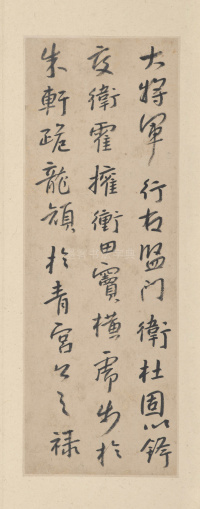 大將軍行右監門衛杜固以銙
交衛霍擁衝田竇橫虎步於
朱軒踞龍頷於青宮公之祿